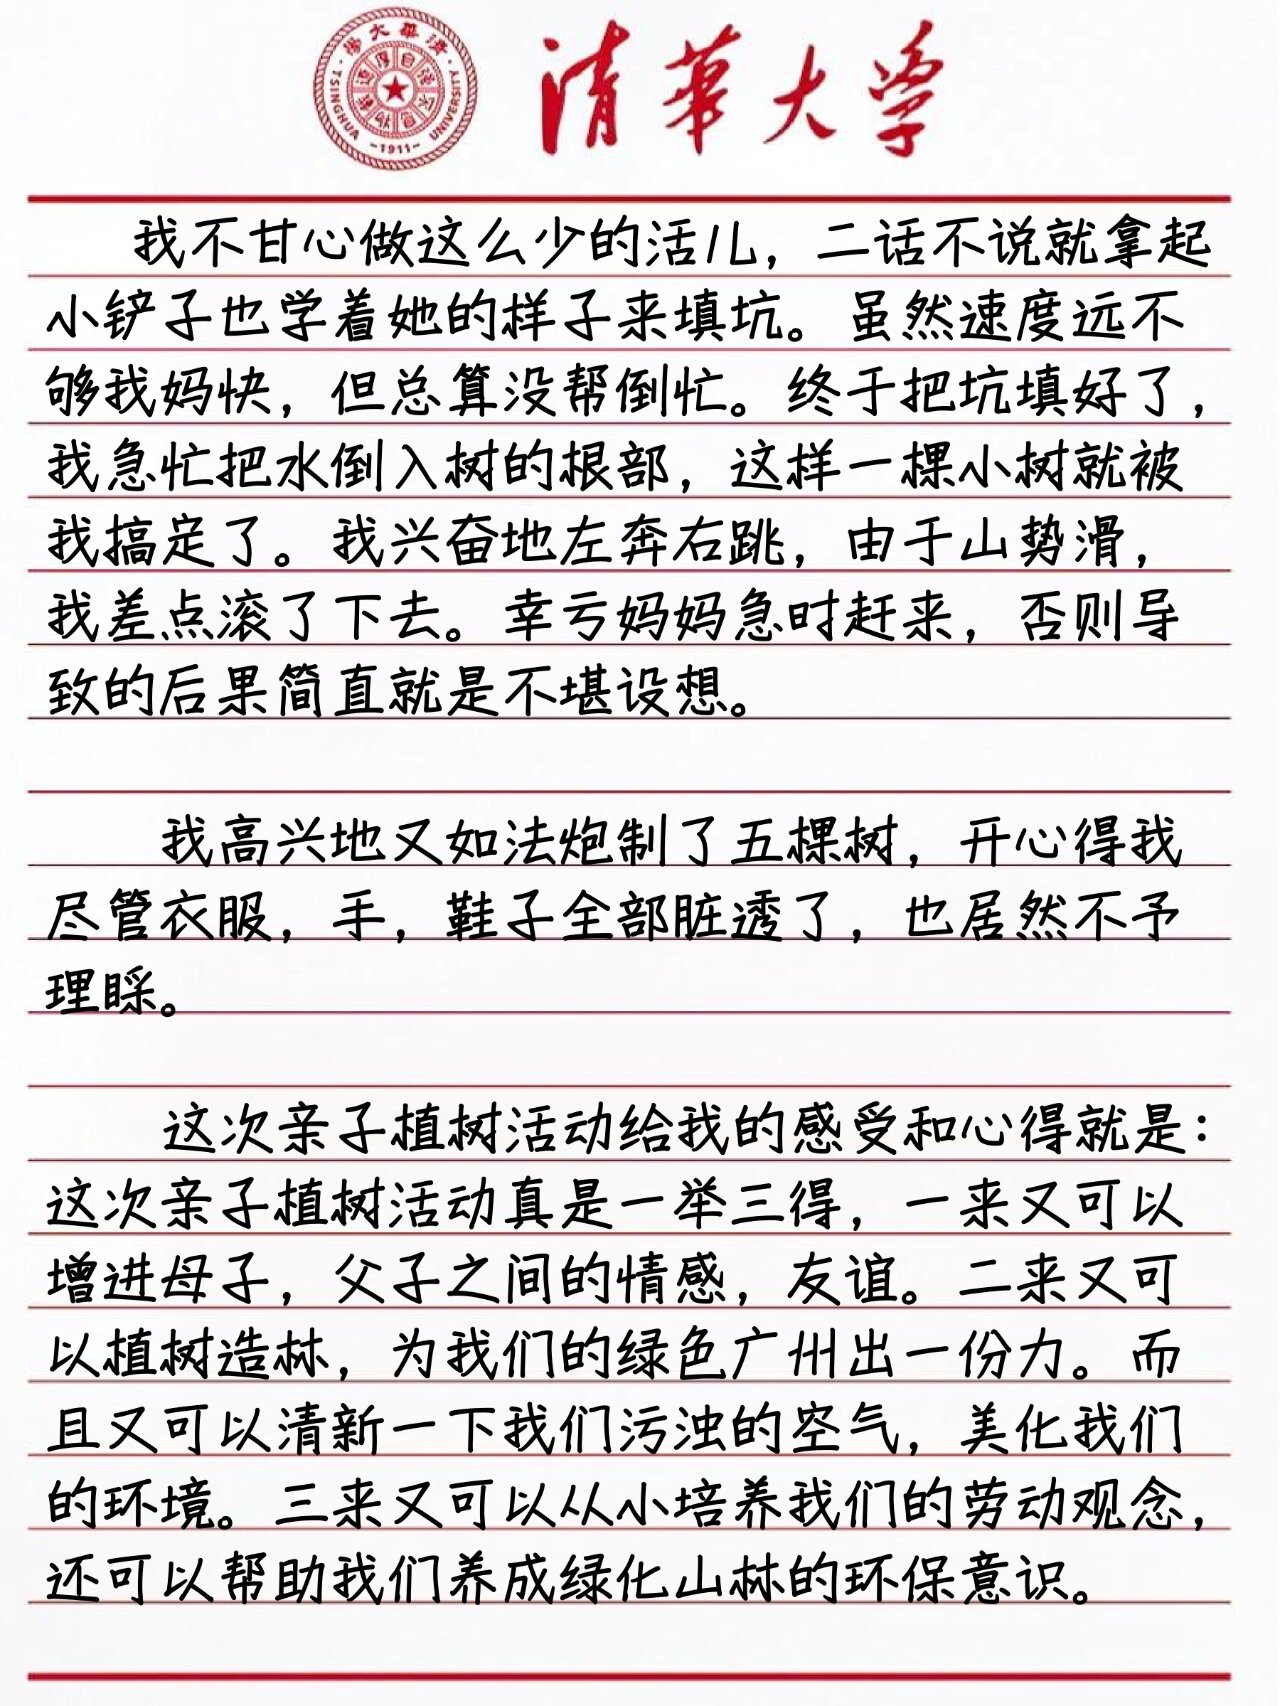 清華大学
TSINGHUA UNIVERSITY
-1911-
我不甘心做这么少的活儿，二话不说就拿起
小铲子也学着她的样子来填坑。虽然速度远不
够我妈快，但总算没帮倒忙。终于把坑填好了，
我急忙把水倒入树的根部，这样一棵小树就被
我搞定了。我兴奋地左奔右跳，由于山势滑，
我差点滚了下去。幸亏妈妈急时赶来，否则导
致的后果简直就是不堪设想。
我高兴地又如法炮制了五棵树，开心得我
尽管衣服，手，鞋子全部脏透了，也居然不予
理睬。
这次亲子植树活动给我的感受和心得就是：
这次亲子植树活动真是一举三得，一来又可以
增进母子，父子之间的情感，友谊。二来又可
以植树造林，为我们的绿色广州出一份力。而
且又可以清新一下我们污浊的空气，美化我们
的环境。三来又可以从小培养我们的劳动观念，
还可以帮助我们养成绿化山林的环保意识。